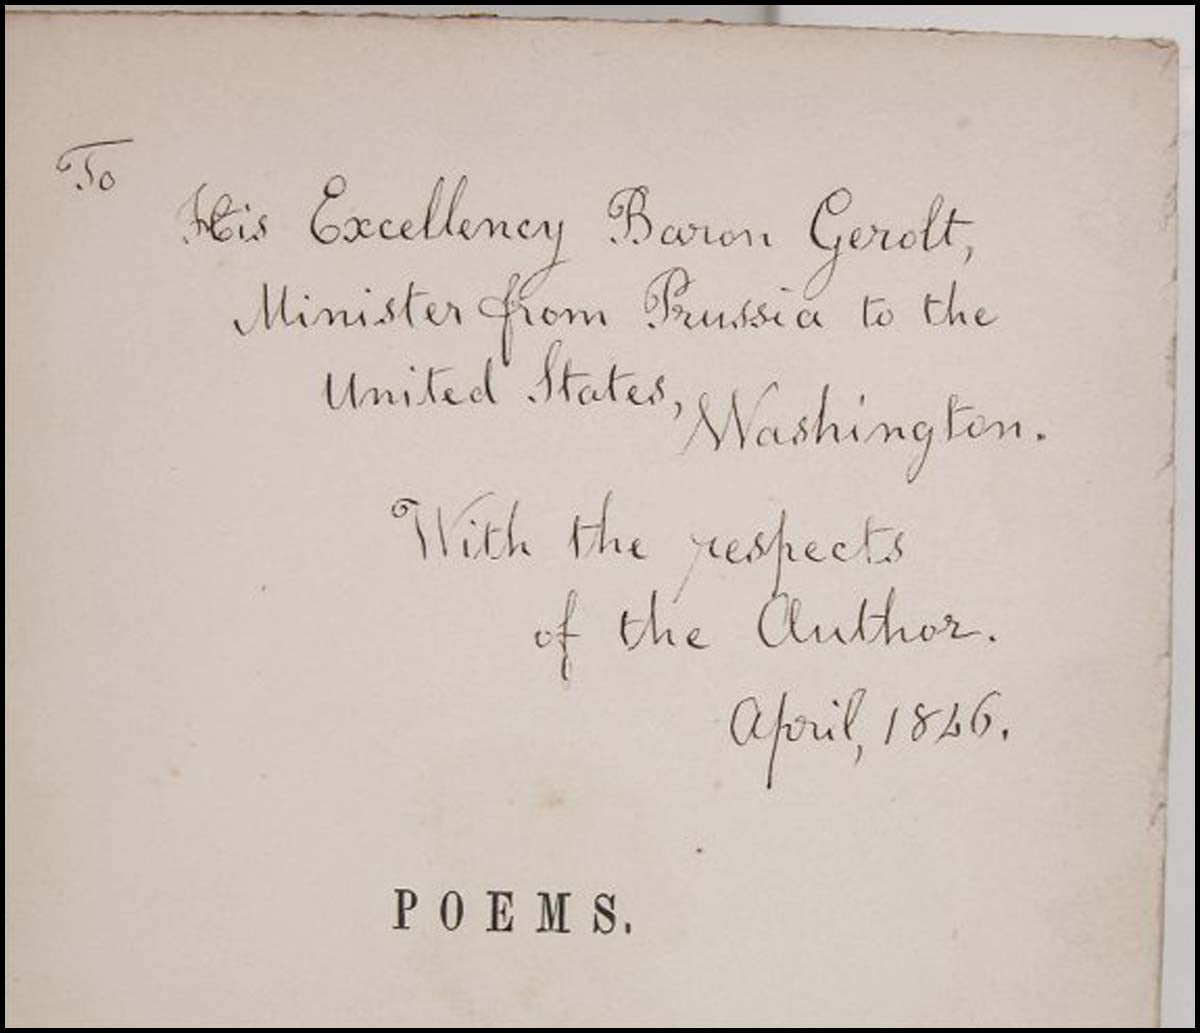 To
His Excellency Baron Gerolt,
Minister from Prussia to the
United States, Washington.
With the respects
of the Author.
April, 1846.
POEMS.